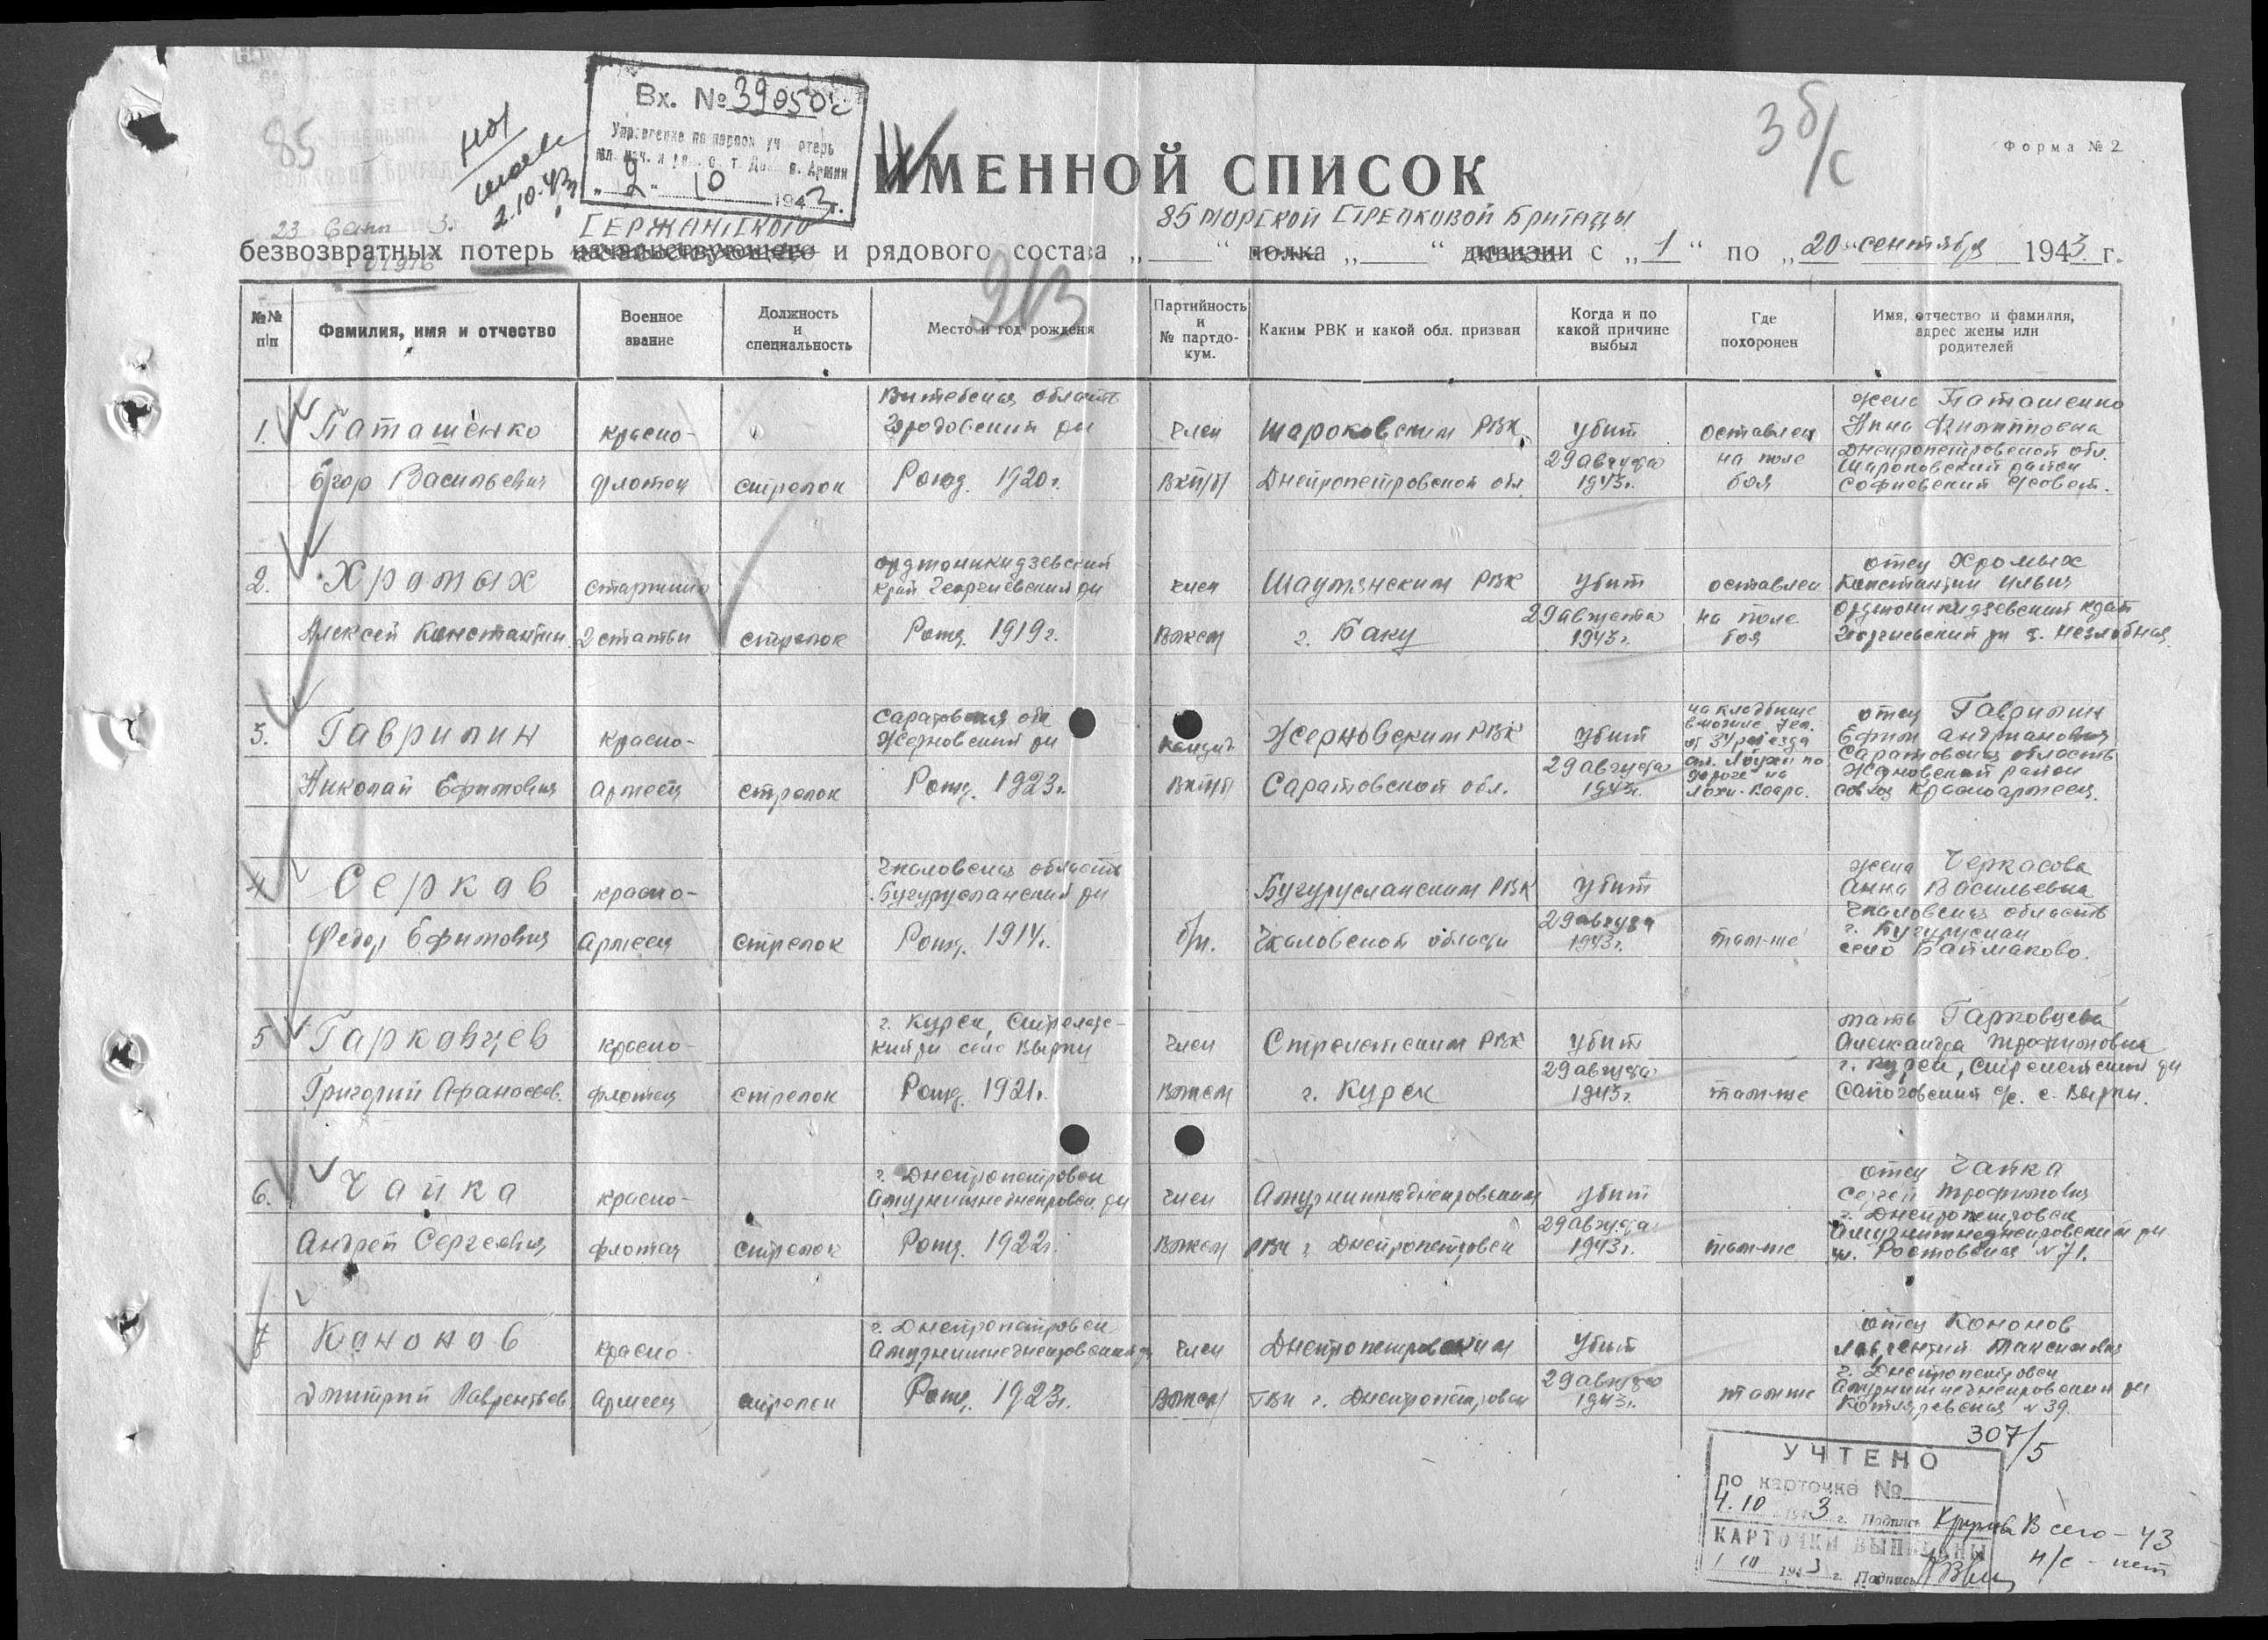 85
23 сент 3.
01916
2.10.43
Вх. № 39050с
Управление по персон. уч. потерь
„9“ 10 1943 г.
3б/с
Форма № 2
ИМЕННОЙ СПИСОК
СЕРЖАНТСКОГО
85 МОРСКОЙ СТРЕЛКОВОЙ БРИГАДЫ
безвозвратных потерь начальствующего и рядового состава „ “ полка „ “ дивизии с „1“ по „20“ сентября 1943 г.
213
№№ п/п
Фамилия, имя и отчество
Военное звание
Должность и специальность
Место и год рождения
Партийность и № партдокум.
Каким РВК и какой обл. призван
Когда и по какой причине выбыл
Где похоронен
Имя, отчество и фамилия, адрес жены или родителей
1. Паташенко Егор Васильевич
красно-флотец
стрелок
Витебская область
Городовский рн
Рожд. 1920г.
член ВКП/б/
Широковским РВК
Днепропетровской обл.
убит 29 августа 1943г.
оставлен на поле боя
жена Паташенко
Нина Филипповна
Днепропетровской обл.
Широковский район
Софиевский с/совет.
2. Хромых Алексей Константин.
старшина 2 статьи
стрелок
орджоникидзевский
край Георгиевский рн
Рожд. 1919г.
член ВЛКСМ
Шаумянским РВК
г. Баку
убит 29 августа 1943г.
оставлен на поле боя
отец Хромых
Константин Ильич
Орджоникидзевский край
Георгиевский рн с. Незлобная
3. Гаврилин Николай Ефимович
красно-армеец
стрелок
Саратовская обл
Жерновский рн
Рожд. 1923г.
кандид. ВКП/б/
Жерновским РВК
Саратовской обл.
убит 29 августа 1943г.
на кладбище
в могиле
от 34 разъезда
ст. Лоухи по
дороге на
отец Гаврилин
Ефим Андрианович
Саратовская область
район
совхоз Красноармеец.
4. Серков Федор Ефимович
красно-армеец
стрелок
Чкаловская область
Бугурусланский рн
Рожд. 1914г.
б/п.
Бугурусланским РВК
Чкаловской области
убит 29 августа 1943г.
там-же
жена Черкасова
Анна Васильевна
Чкаловская область
г. Бугуруслан
село Баймаково.
5 Гарковцев Григорий Афанасьев.
красно-флотец
стрелок
г. Курск, Стрелец-
кий рн село Вырпи
Рожд. 1921г.
член ВЛКСМ
Стрелетским РВК
г. Курск
убит 29 августа 1943г.
там-же
мать Гарковцева
Александра Трофимовна
г. Курск, Стрелетский рн
Сапоговский с/с. с. Вырпи.
6. Чайка Андрей Сергеевич
красно-флотец
стрелок
г. Днепропетровск
Амурнижнеднепровск. рн
Рожд. 1922г.
член ВЛКСМ
Амурнижнеднепровским
РВК г. Днепропетровск
убит 29 августа 1943г.
там-же
отец Чайка
Сергей Трофимович
г. Днепропетровск
Амурнижнеднепровский рн
ул. Ростовская № 71.
7 Кононов Дмитрий Лаврентьев
красно-армеец
стрелок
г. Днепропетровск
Амурнижнеднепровский рн
Рожд. 1923г.
член ВЛКСМ
Днепропетровским
ГВК г. Днепропетровск
Убит 29 августа 1943г.
там же
отец Кононов
Лаврентий Максимович
г. Днепропетровск
Амурнижнеднепровский рн
Котляревская № 39.
307/5
УЧТЕНО
по карточке №
4.10 1943 г. Подпись
КАРТОЧКИ ВЫПИСАНЫ
1943 г. Подпись
Всего – 43
н/с – нет